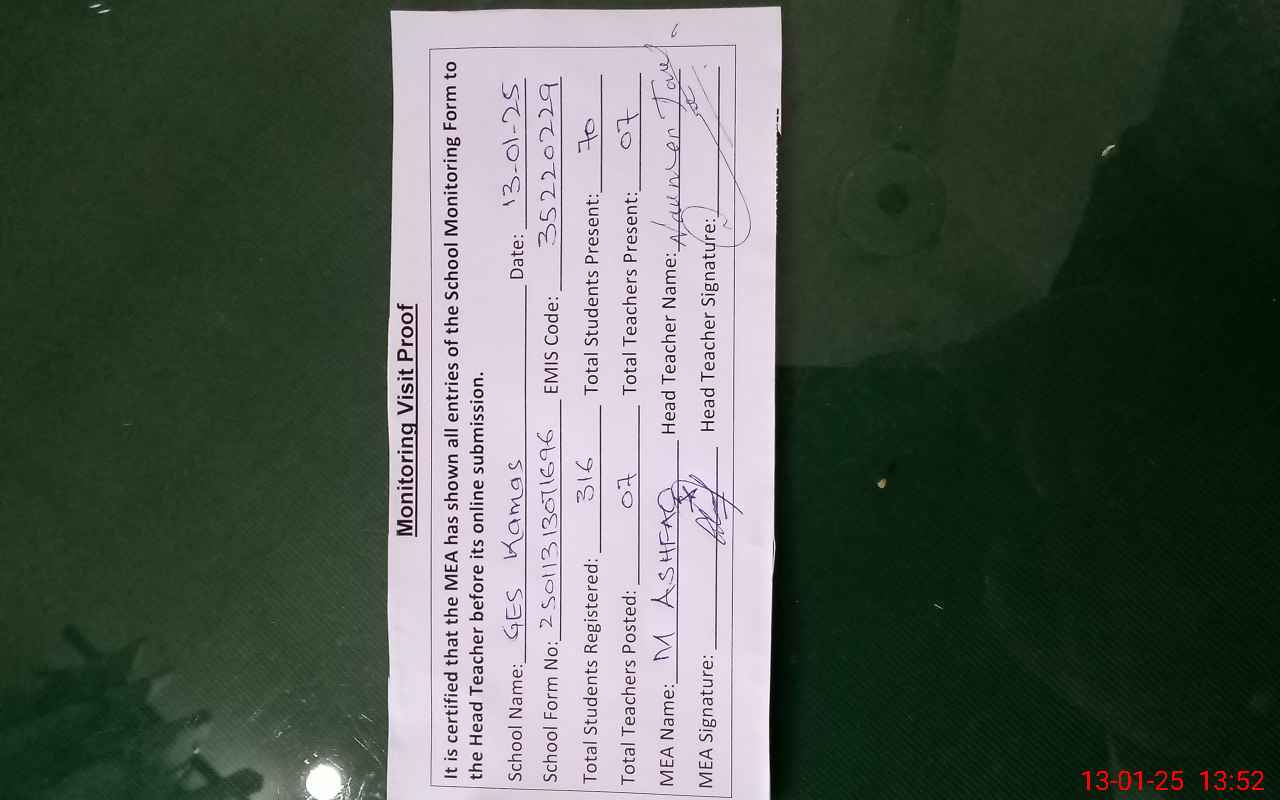 Monitoring Visit Proof
It is certified that the MEA has shown all entries of the School Monitoring Form to
the Head Teacher before its online submission.
School Name: GES Kamas Date: 13-01-25
School Form No: 25011313071696 EMIS Code: 35220229
Total Students Registered: 316 Total Students Present: 70
Total Teachers Posted: 07 Total Teachers Present: 07
MEA Name: M ASHFAQ Head Teacher Name:
MEA Signature: Head Teacher Signature:
13-01-25 13:52